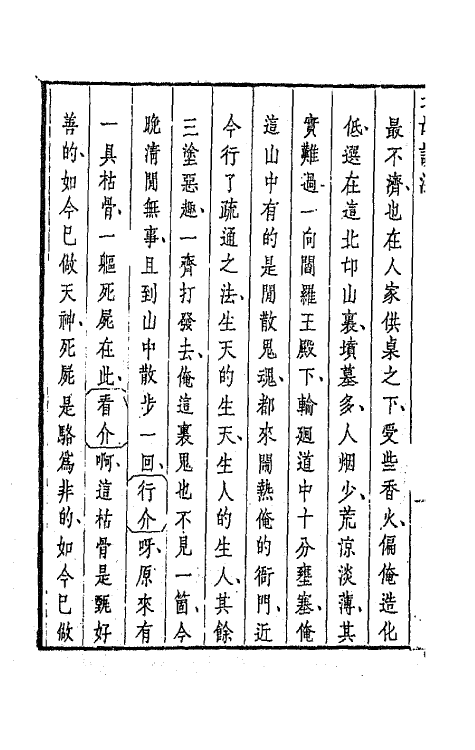 最不濟、也在人家供桌之下、受些香火、偏俺造化
低、選在這北邙山裏、墳墓多、人烟少、荒涼淡薄、其
實難過、一向閻羅王殿下、輪廻道中十分壅塞、俺
這山中有的是閒散鬼魂、都來鬧熱俺的衙門、近
今行了疏通之法、生天的生天、生人的生人、其餘
三塗惡趣、一齊打發去、俺這裏鬼也不見一箇、今
晚清閒無事、且到山中散步一回、行介呀、原來有
一具枯骨、一軀死屍在此、看介啊、這枯骨是甄好
善的、如今已做天神、死屍是駱爲非的、如今已做